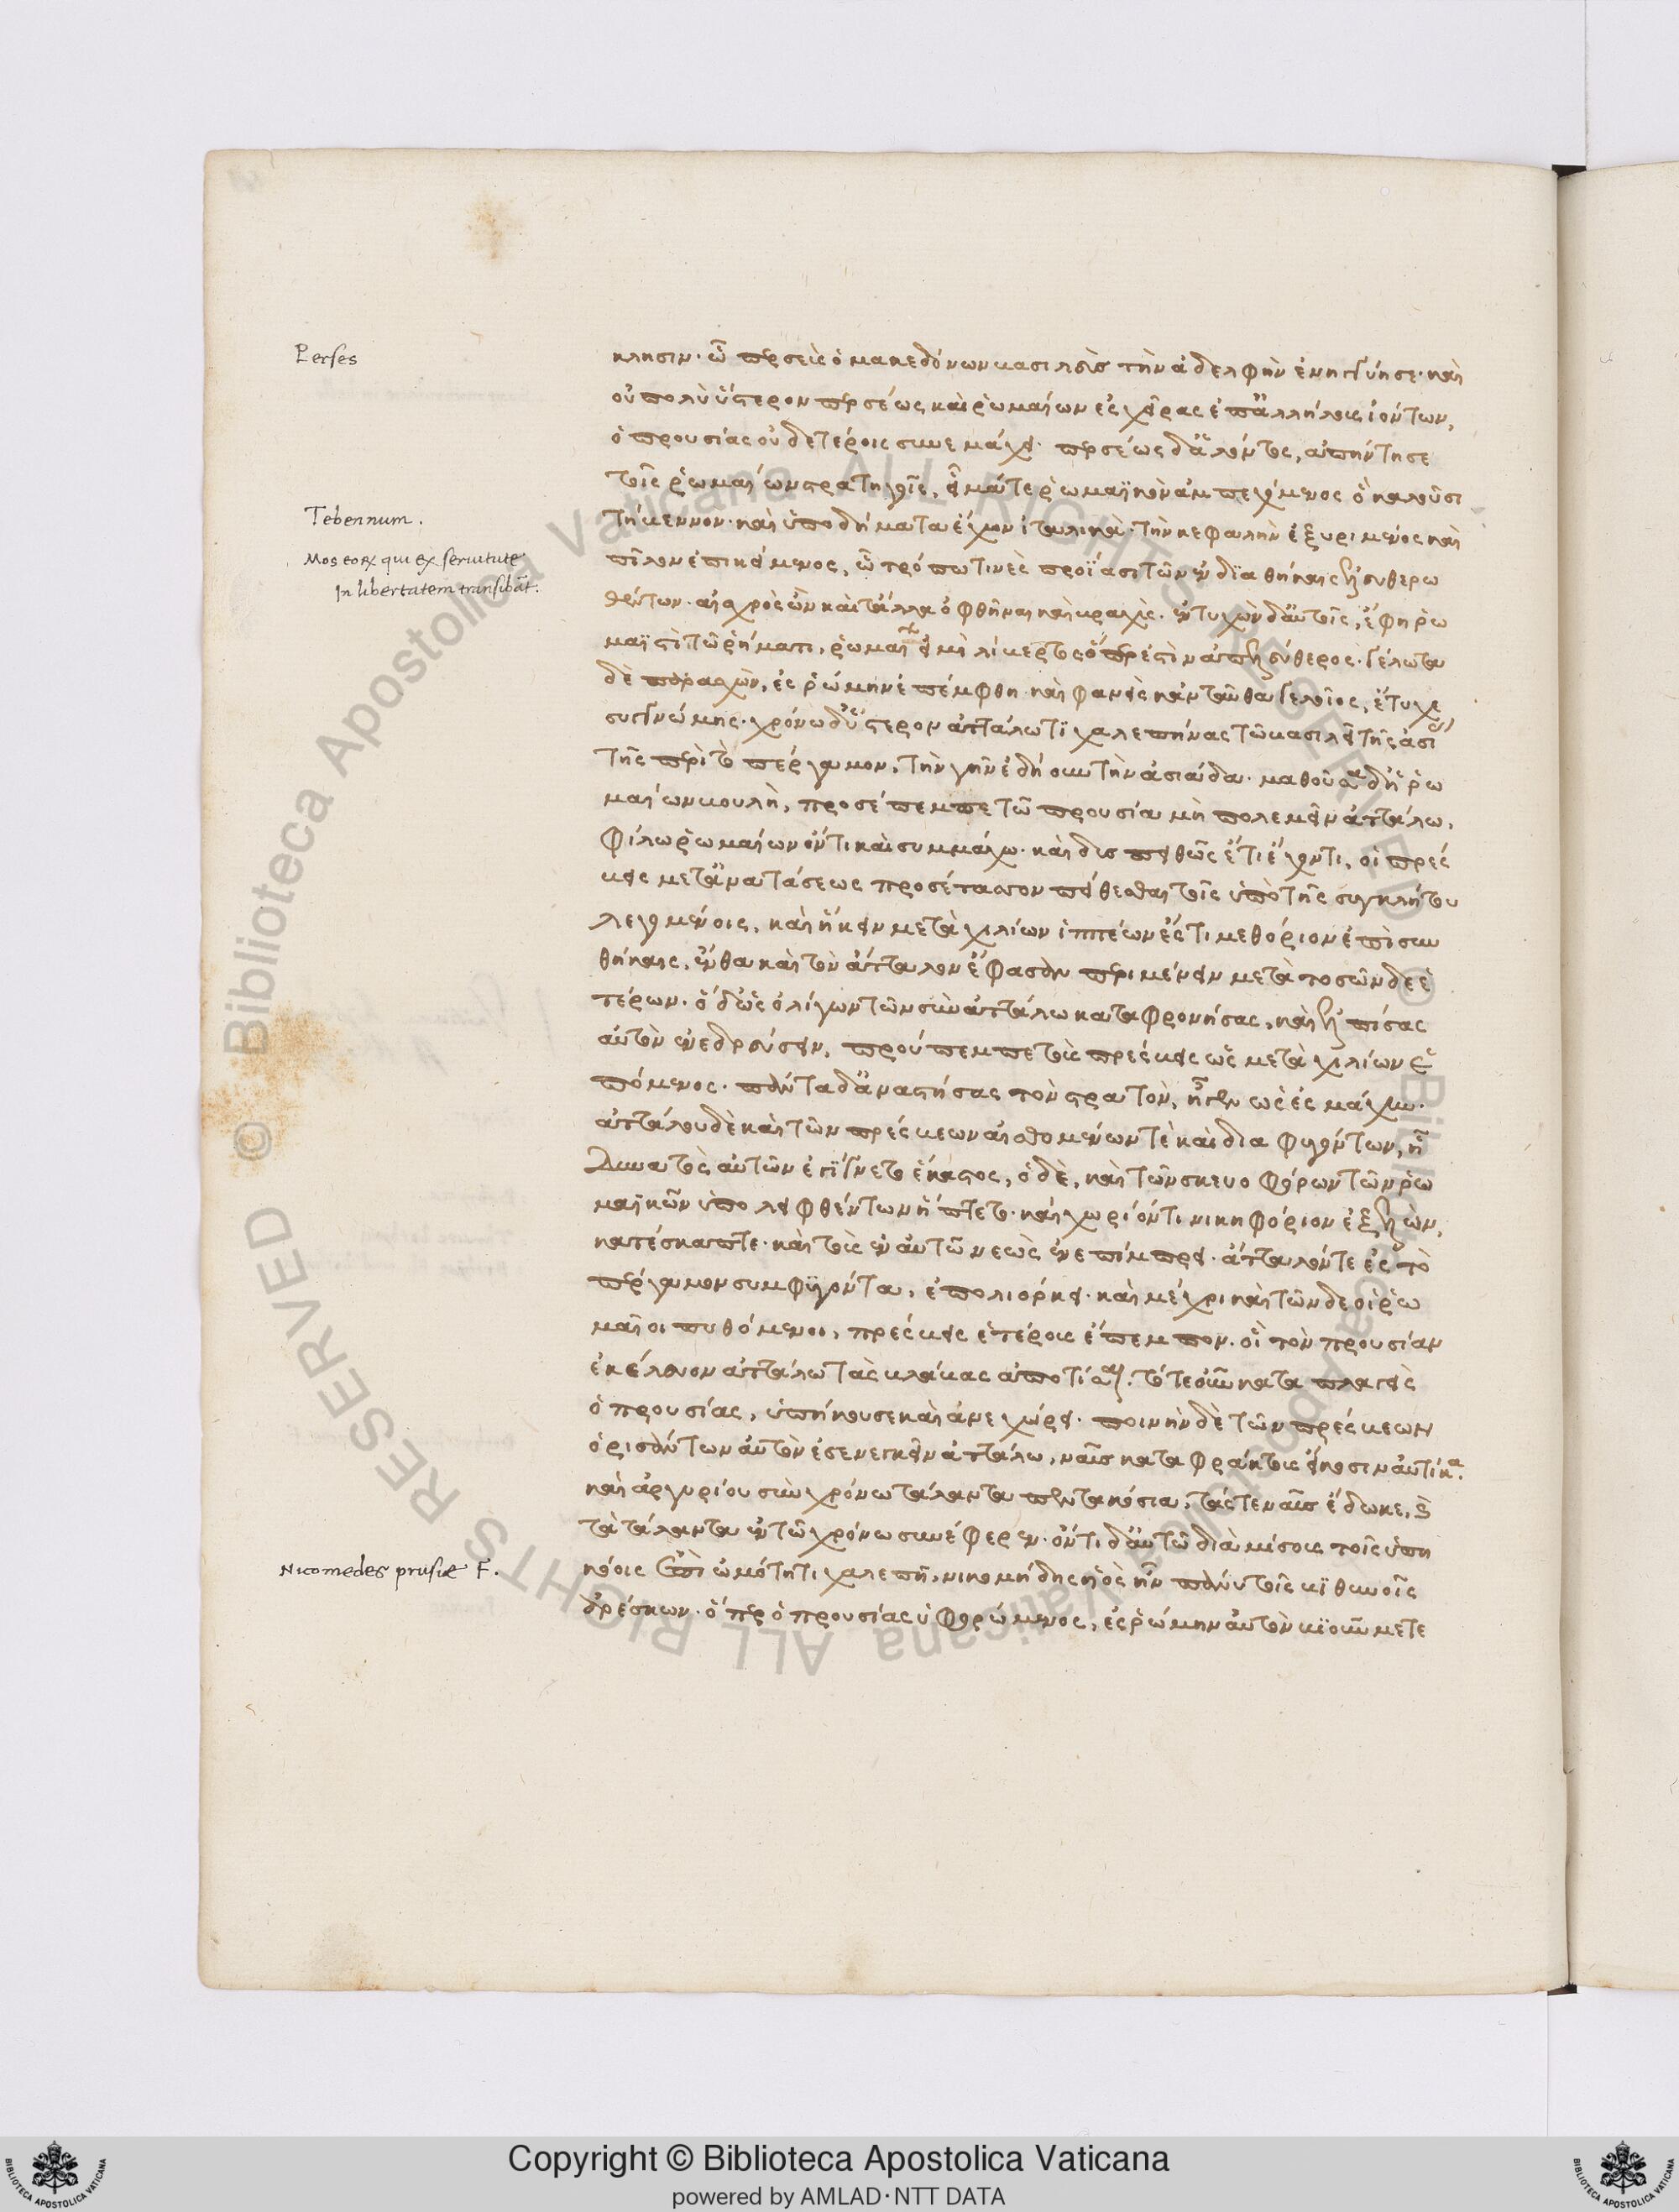 Perses
Tebennum.
Mos eorum qui ex seruitute
In libertatem transibāt.
Nicomedes prusiæ F.
κλησιν. ᾧ περσεὺς ὁ μακεδόνων βασιλεὺς τὴν ἀδελφὴν ἐνηγγύησε. καὶ
οὐ πολὺ ὕστερον περσέως καὶ ῥωμαίων ἐς χεῖρας ἐπ' ἀλλήλους ἰόντων,
ὁ προυσίας οὐδετέροις συνεμάχει. περσέως δ' ἁλόντος, ἀπήντησε
τοῖς ῥωμαίων στρατηγοῖς, εἷμά τε ῥωμαϊκὸν ἀμπεχόμενος ὃ καλοῦσι
τήβεννον. καὶ ὑποδήματα ἔχων ἰταλικὰ. τὴν κεφαλὴν ἐξυρημένος καὶ
πῖλον ἐπικείμενος, ᾧ τρόπω τινὲς προΐασι τῶν ἐν διαθήκαις ἐλευθερω
θέντων. αἰσχρὸς ὢν καὶ τἄλλα ὀφθῆναι καὶ βραχὺς. ἐντυχὼν δ' αὐτοῖς, ἔφη ῥω
μαϊστὶ τῶ ῥήματι, ῥωμαίων εἰμὶ λίβερτος ὅπερ ἐστὶν ἀπελεύθερος. γέλωτα
δὲ παρασχὼν, ἐς ῥώμην ἐπέμφθη. καὶ φανεὶς κἀνταῦθα γελοῖος, ἔτυχε
συγγνώμης. χρόνω δ' ὕστερον ἀττάλω τϊ χαλεπήνας τῶ βασιλεῖ τῆς ἀσίας
τῆς περὶ τὸ πέργαμον, τὴν γῆν ἐδήου τὴν ἀσιάδα. μαθοῦσα δ' ἡ ῥω
μαίων βουλὴ, προσέπεμπε τῶ προυσία μὴ πολεμεῖν ἀττάλω,
φίλω ῥωμαίων ὄντι καὶ συμμάχω. καὶ δυσπειθῶς ἔτι ἔχοντι, οἱ πρέσ
βεις μετ' ἀνατάσεως προσέτασσον πείθεσθαι τοῖς ὑπὸ τῆς συγκλήτου
λεγομένοις, καὶ ἥκειν μετὰ χιλίων ἱππέων ἔς τι μεθόριον ἐπὶ συν
θήκαις, ἔνθα καὶ τὸν ἄτταλον ἔφασαν περιμένειν μετὰ τοσῶνδε ἑ
τέρων. ὁ δ' ὡς ὀλίγων τῶν σὺν ἀττάλω καταφρονήσας, καὶ ἐλπίσας
αὐτὸν ἐνεδρεύσειν, προύπεμπε τοὺς πρέσβεις ὡς μετὰ χιλίων ἑ
πόμενος. πάντα δ' ἀναστήσας τὸν στρατὸν, ἦγεν ὡς ἐς μάχην.
ἀττάλου δὲ καὶ τῶν πρέσβεων αἰσθομένων τὲ καὶ διαφυγόντων, ᾗ
δυνατὸς αὐτῶν ἐγίγνετο ἕκαστος, ὁ δὲ, καὶ τῶν σκευοφόρων τῶν ῥω
μαϊκῶν ὑπολειφθέντων ἥπτετο. καὶ χωρίόν τι νικηφόριον ἐξελὼν,
κατέσκαπτε. καὶ τοὺς ἐν αὐτῶ νεὼς ἐνεπίμπρα. ἄτταλόν τε ἐς τὸ
πέργαμον συμφυγόντα, ἐπολιόρκει. καὶ μέχρι καὶ τῶνδε οἱ ῥω
μαῖοι πυθόμενοι, πρέσβεις ἑτέρους ἔπεμπον. οἳ τὸν προυσίαν
ἐκέλευον ἀττάλω τὰς βλάβας ἀποτίσαι. τότε οὖν καταπλαγεὶς
ὁ προυσίας, ὑπήκουσε καὶ ἀνεχώρει. ποινὴν δὲ τῶν πρέσβεων
ὁρισάντων αὐτὸν ἐσενεγκεῖν ἀττάλω, ναῦς καταφράκτους εἴκοσιν αὐτίκα.
καὶ ἀργυρίου σὺν χρόνω τάλαντα πεντακόσια, τάς τε ναῦς ἔδωκε, καὶ
τὰ τάλαντα ἐν τῶ χρόνω συνέφερεν. ὄντι δ' αὐτῶ διὰ μίσους τοῖς ὑπη
κόοις ἐπὶ ὠμότητι χαλεπῆ, νικομήδης υἱὸς ἦν πάνυ τοῖς βιθυνοῖς
ἀρέσκων. ὅπερ ὁ προυσίας ὑφορώμενος, ἐς ῥώμην αὐτὸν βιοῦν μετε
Copyright © Biblioteca Apostolica Vaticana
powered by AMLAD·NTT DATA
© Biblioteca Apostolica Vaticana ALL RIGHTS RESERVED
© Biblioteca Apostolica Vaticana ALL RIGHTS RESERVED